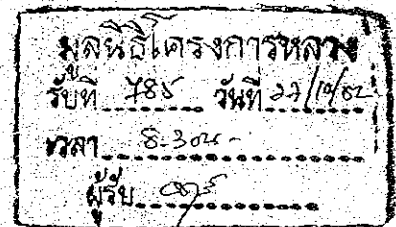 มูลนิธิโครงการหลวง
รับที่ 785 วันที่ 27/10/62
เวลา 8.30 น.
ผู้รับ